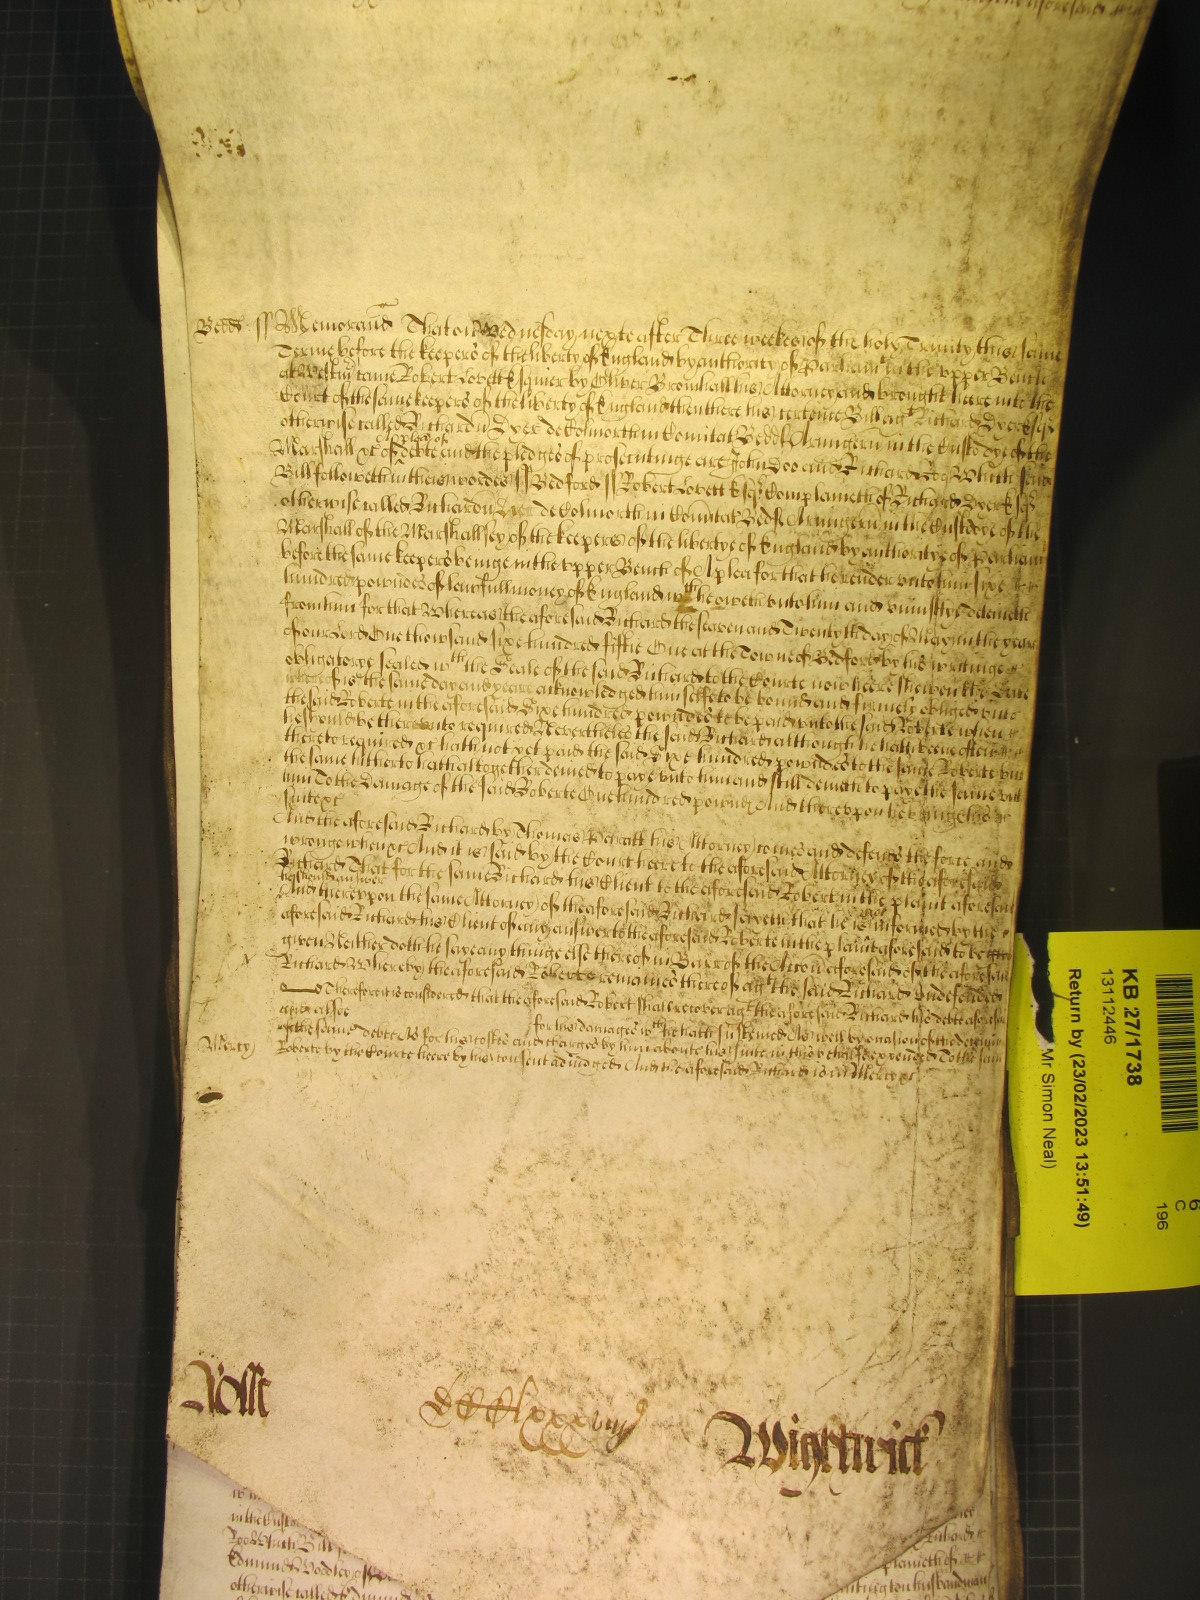 Bedd ss Memorand That on Wednesday nexte after Three weekes of the holy Trinity this same
Terme before the keepers of the liberty of England by authority of Parliamt in the vpper Bench
at Westm came Robert Lovett Esquier by Oliver Bromhall his Attorney and brought heere into the
Court of the same keepers of the liberty of England then there his certeine Bill agt Richard Dyer Esqr
otherwise called Richardu Dyer de Colmorth in Comitat Bedd Armigeru in the Custodye of the
Marshall &c of a plea of debte and the pledges of prosecutinge are John Doo and Richard Roo Which seid
Bill followeth in theis wordes ss Bedford ss Robert Lovett Esqr Complaineth of Richard Dyer Esqr
otherwise called Richardu Dyer de Colmorth in Comitat Bedf Armigeru in the Custodye of the
Marshall of the Marshallsey of the keepers of the libertye of England by authoritye of Parliamt
before the same keepers beinge in the vpper Bench of A plea for that he render vnto him sixe
hundred powndes of lawfull money of England wch he oweth vnto him and vniustlye deteineth
from him for that Whereas the aforesaid Richard the seaven and Twentyth day of May in the yeare
of our Lord One thowsand sixe hundred fiftie One at the Towne of Bedford by his writinge
obligatorye sealed wth the Seale of the said Richard to the Courte now heere shewen the Date
whereof is the same day and yeare acknowledged himselfe to be bound and firmely obliged vnto
the said Roberte in the aforesaid Sixe hundred powndes to be paid vnto the said Roberte when
he should be therevnto required Neverthelesse the said Richard although he hath beene often
thereto required &c hath not yet paid the said Sixe hundred powndes to the same Roberte but
the same hitherto hath altogether denied to paye vnto him and still denieth to paye the same vnto
him To the Damage of the said Roberte One hundred pownds And therevpon he bringeth his
suite &c
And the aforesaid Richard by Thomas Peiratt his Attorney comes and defends the force and
wronge when &c And it is said by the Court heere to the aforesaid Attorney of the aforesaid
Richard That for the same Richard his Client to the aforesaid Robert in the plaint aforesaid
he should answer
And therevpon the same Attorney of the aforesaid Richard sayeth that he is not informed by the
aforesaid Richard his Client of any answer to the aforesaid Roberte in the plaint aforesaid to be
given Neither doth he saye any thinge else thereof in Barr of the Accon aforesaid of the aforesaid
Richard Whereby the aforesaid Roberte remaines thereof agt the said Richard Vndefended
Therefore it is considered that the aforesaid Robert shall recover agt the aforesaid Richard his debte aforesaid
and alsoe for his damages wch he hath susteined As well by occasion of the deteininge
of the same debte As for his costes and charges by him about his suite in this behalfe expended To the same
Mercy Roberte by the Courte heere by his consent adiudged And the aforesaid Richard is in Mercy &c
Rolle
Wightwick
KB 27/1738
13112446
Return by (23/02/2023 13:51:49)
Mr Simon Neal)
6
C
196